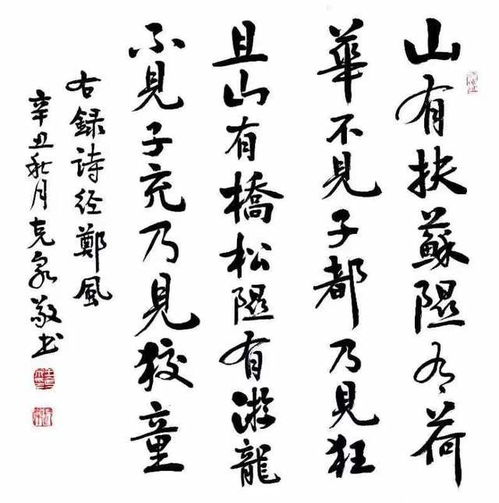 山有扶蘇隰有荷
華不見子都乃見狂
且山有橋松隰有游龍
不見子充乃見狡童
右録詩经鄭風
辛丑秋月克泉敬书